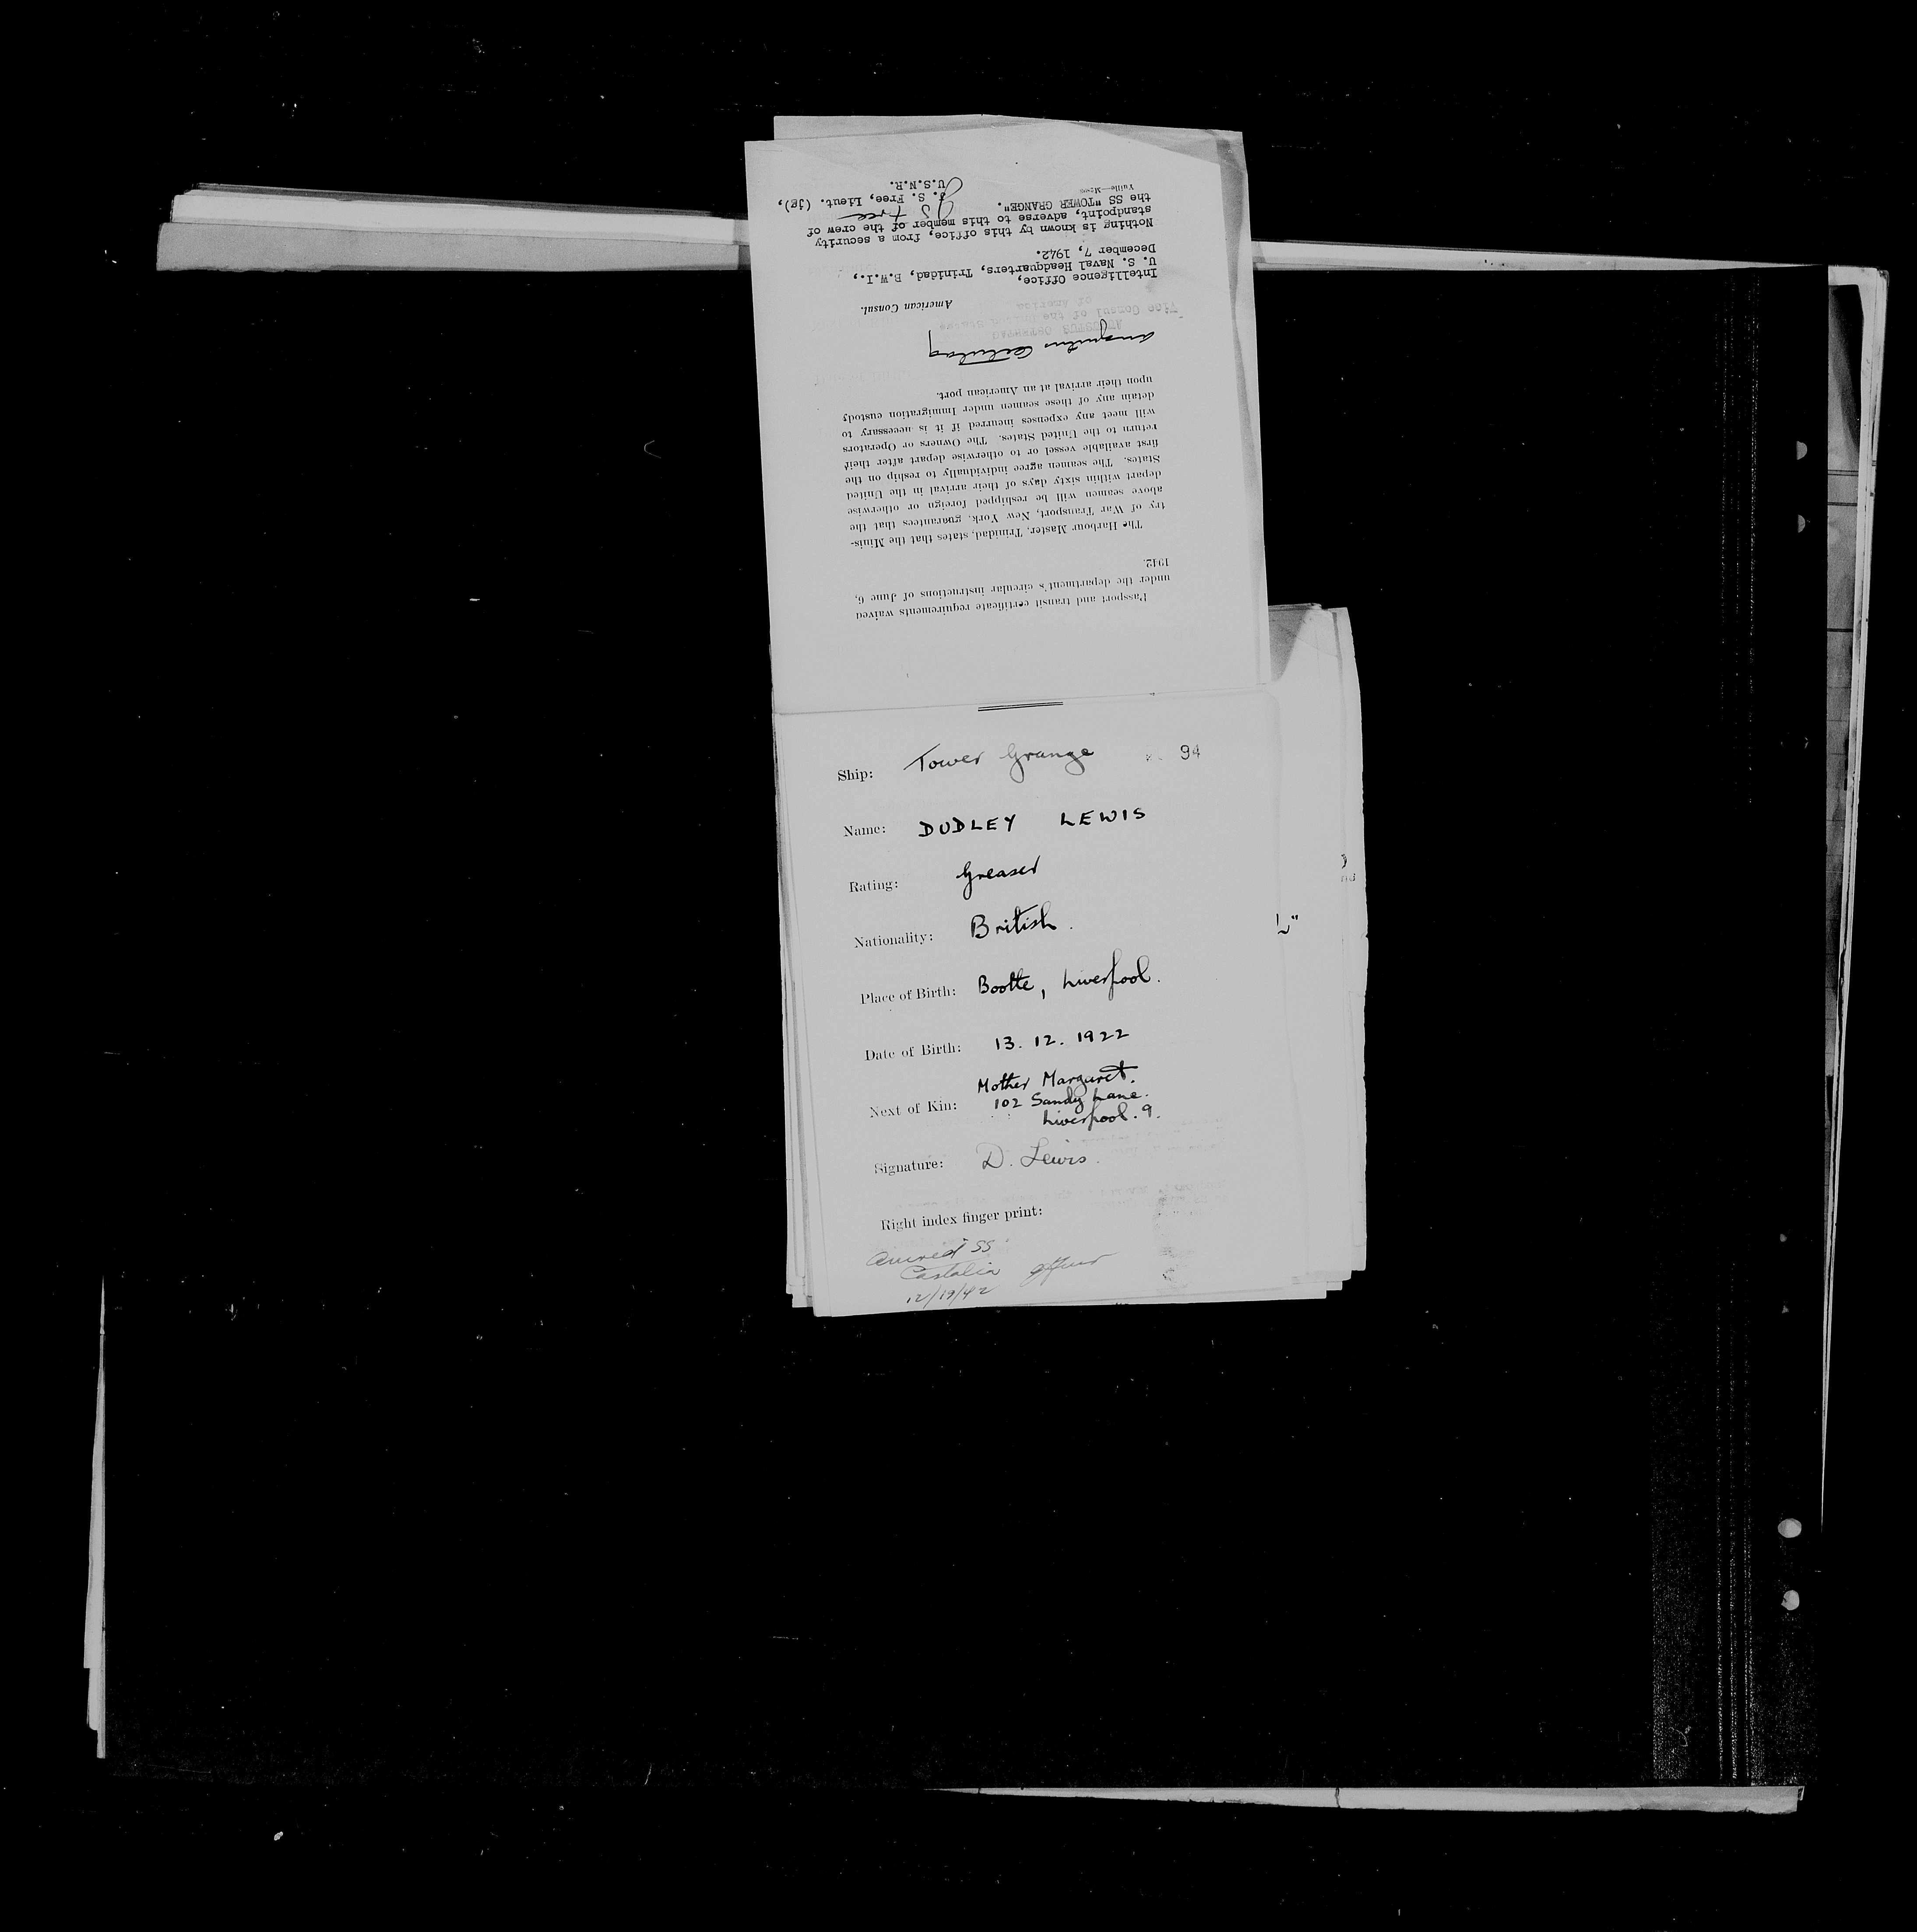 Passport and transit certificate requirements waived
under the department's circular instructions of June 6,
1942.
The Harbour Master, Trinidad, states that the Minis-
try of War Transport, New York, guarantees that the
above seamen will be reshipped foreign or otherwise
depart within sixty days of their arrival in the United
States. The seamen agree individually to reship on the
first available vessel or to otherwise depart after their
return to the United States. The Owners or Operators
will meet any expenses incurred if it is necessary to
detain any of these seamen under Immigration custody
upon their arrival at an American port.
Vice Consul of the United States
of America
American Consul.
Intelligence Office,
U. S. Naval Headquarters, Trinidad, B.W.I.,
December 7, 1942.
Nothing is known by this office, from a security
standpoint, adverse to this member of the crew of
the SS "TOWER GRANGE".
J S Free
J. S. Free, Lieut. (jg),
U.S.N.R.
Ship: Tower Grange 94
Name: DUDLEY LEWIS
Rating: Greaser
Nationality: British.
Place of Birth: Bootle, Liverpool.
Date of Birth: 13. 12. 1922
Mother Margaret.
Next of Kin: 102 Sandy Lane.
Liverpool. 9.
Signature: D. Lewis.
Right index finger print:
Arrived SS
Castalia
12/19/42